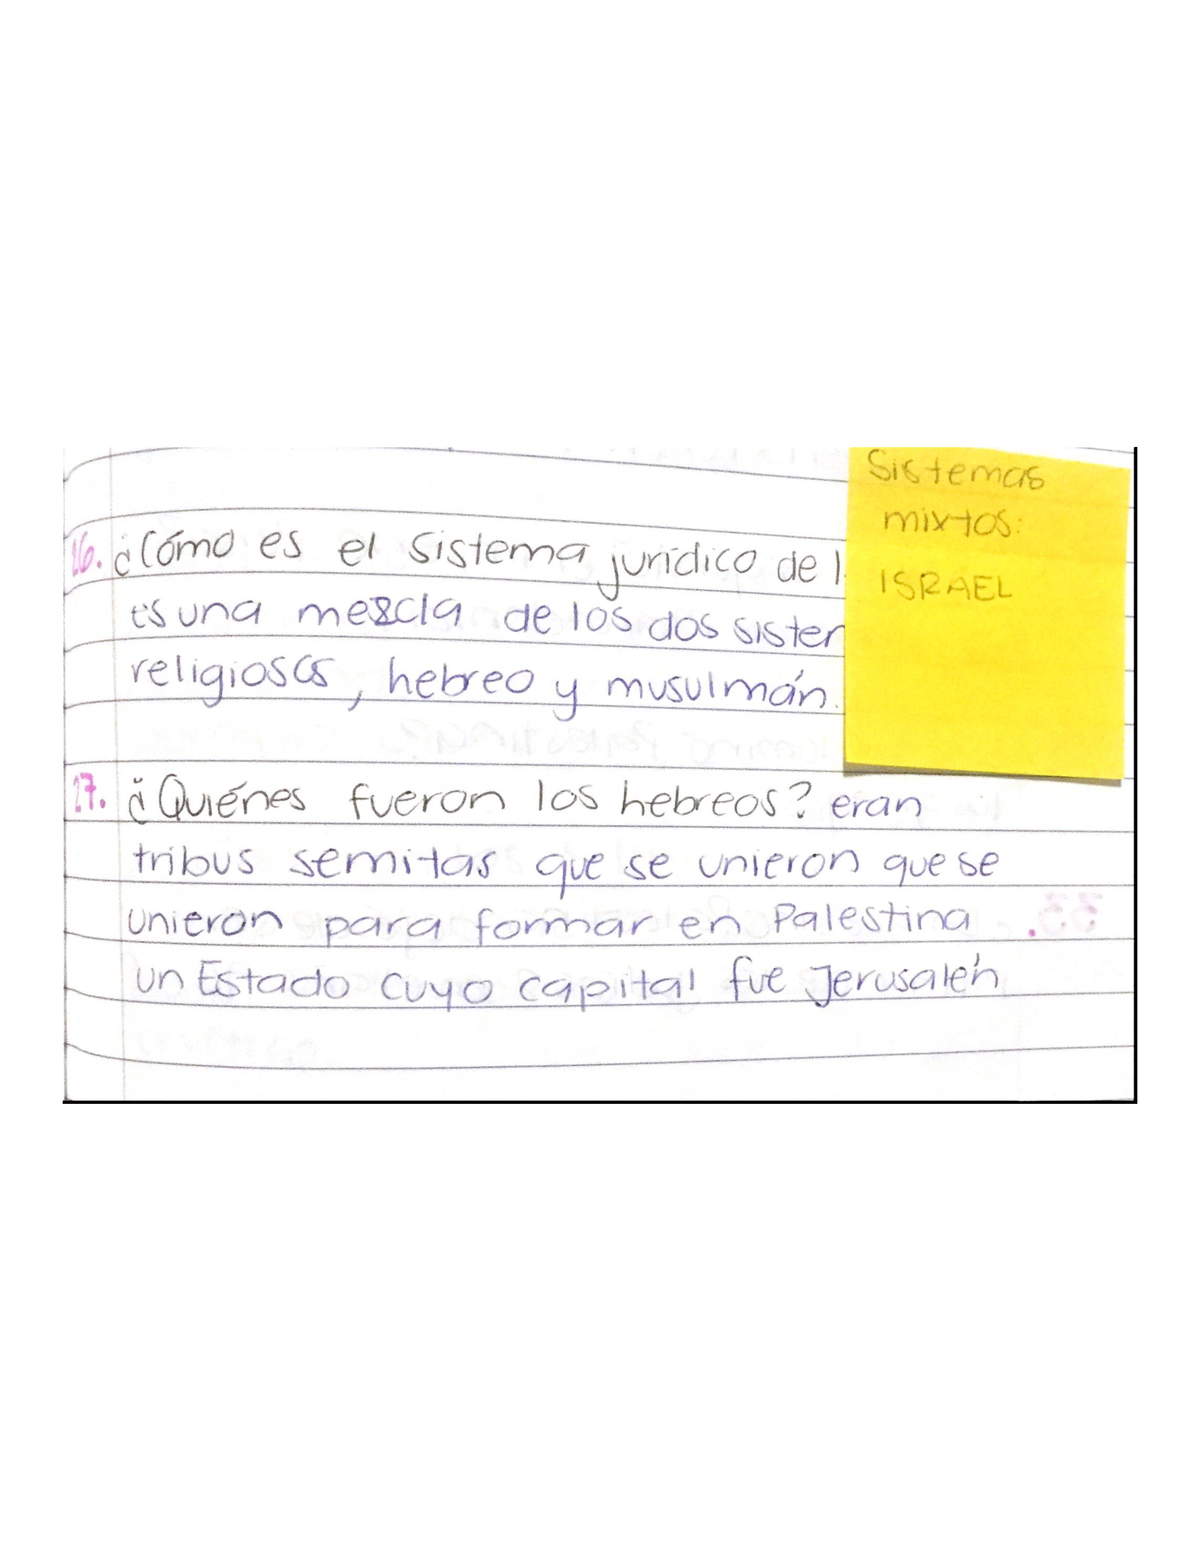 Sistemas
mixtos:
ISRAEL
26. ¿Cómo es el sistema jurídico de
es una mezcla de los dos sistem
religiosos, hebreo y musulmán.
27. ¿Quiénes fueron los hebreos? eran
tribus semitas que se unieron que se
unieron para formar en Palestina
un Estado cuyo capital fue Jerusalén
33.